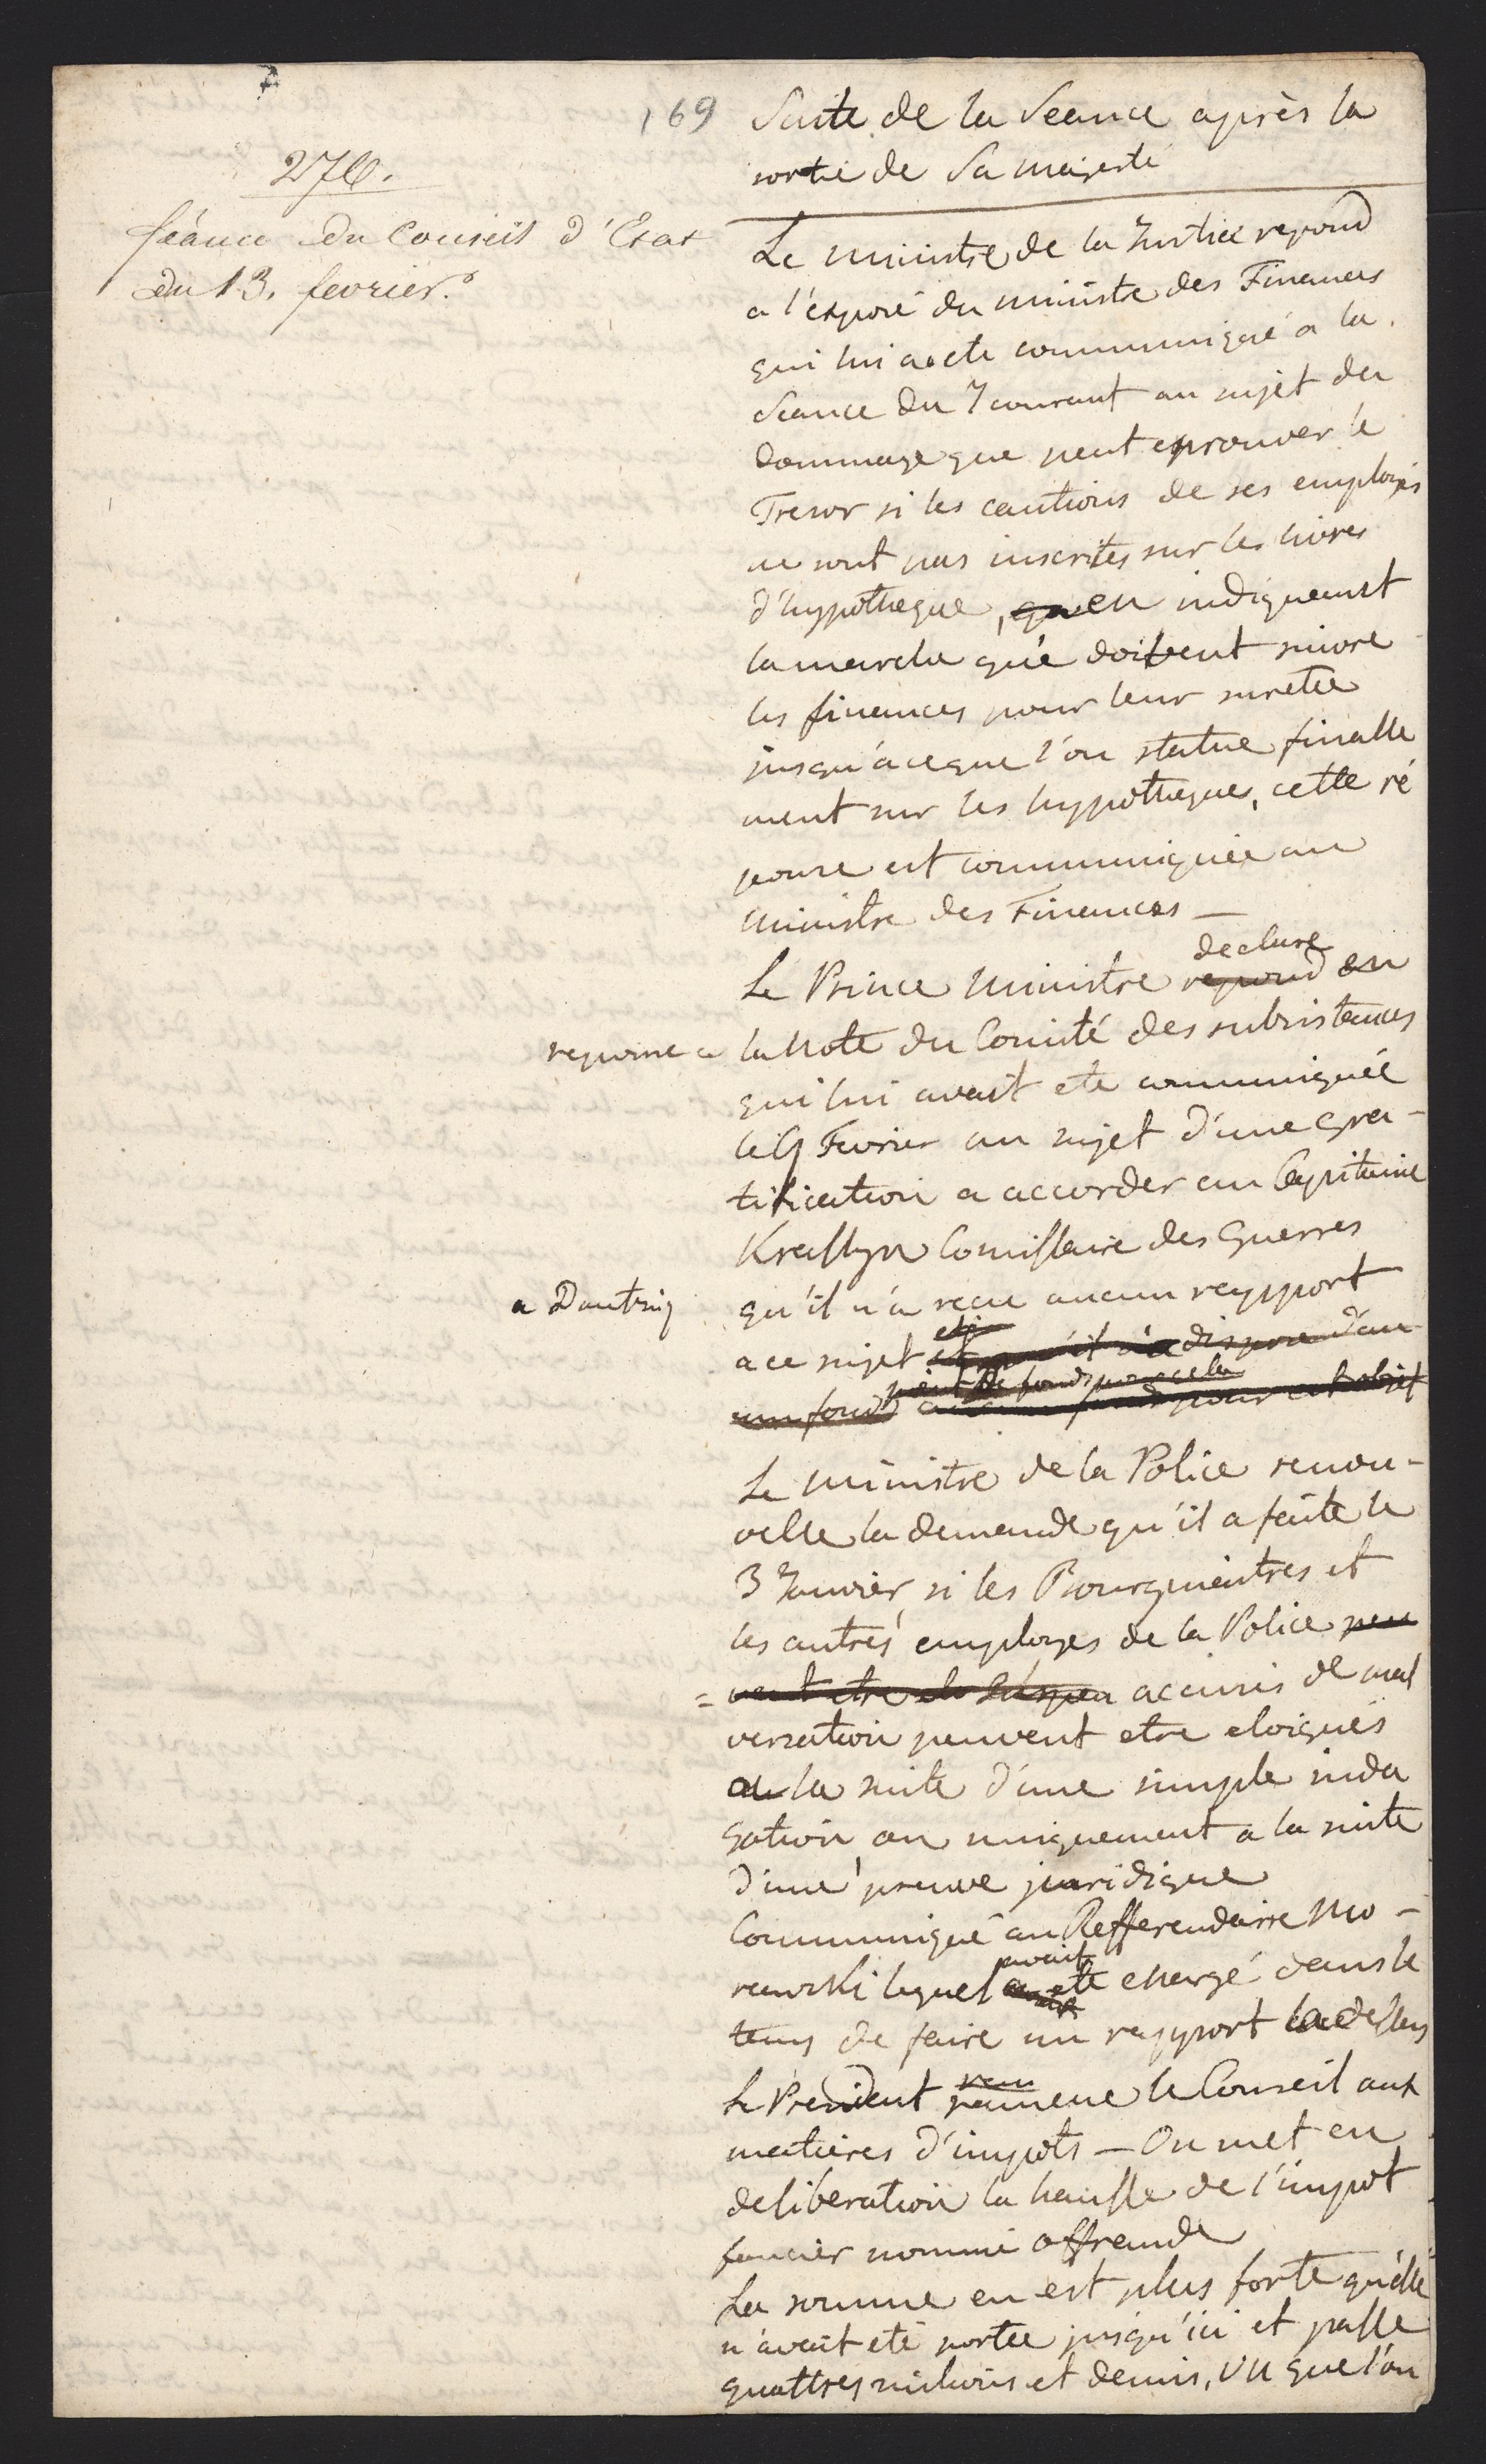 169
276.
Séance du Conseil d'Etat
du 13. fevrier.
Suite de la Seance après la
sortie de Sa majesté
Le ministre de la Justice repond
a l'exposé du ministre des Finances
qui lui a ete communiqué a la
Seance du 7 courant au sujet du
dommage que peut eprouver le
Tresor si les cautions de ses employés
ne sont pas inscrites sur les livres
d'hypotheque, en indiquant
la marche que doivent suivre
les finances pour leur sureté
jusqu'a ce que l'on statue finalle
ment sur les hyppotheques, cette ré
ponse est communiquée au
ministre des Finances —
declare
Le Prince Ministre repond en
reponse a la Note du Comité des subsistences
qui lui avait ete communiquée
le 9 Fevrier au sujet d'une gra-
tification a accorder au Capitaine
Comissaire des Guerres
a Dantzig
qu'il n'a recu aucun rapport
a ce sujet et qu'il n'a dispose d'au
point de fonds pour cela
un fond pour cet objet
Le ministre de la Police renou-
velle la demande qu'il a faite le
3 Janvier, si les Bourgmeistres et
les autres employes de la Police peu
= vent etre accusés de mal
versation peuvent etre eloignés
a la suite d'une simple inda
gation, ou uniquement a la suite
d'une preuve juridique
Communiqué au Refferendaire Mo-
avait
rawski lequel ete chargé dans le
tems de faire un rapport la dessus
Le President ramene le Conseil aux
matieres d'impots — On met en
deliberation la hausse de l'impot
foncier nommé offrande
La somme en est plus forte qu'elle
n'avait eté portée jusqu'ici et passe
quattres milions et demis, vu que l'on